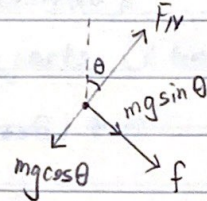 FN
θ
mg sin θ
mg cos θ
f